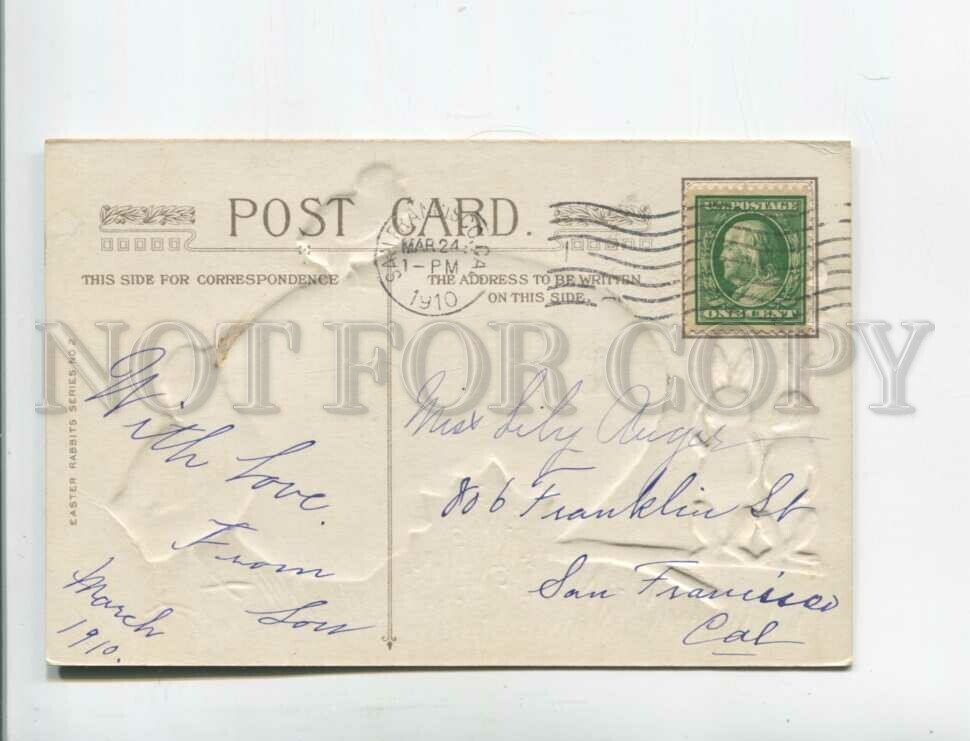 POST CARD.
SAN FRANCISCO, CAL.
MAR 24
1-PM
1910
U.S. POSTAGE
ONE CENT
THIS SIDE FOR CORRESPONDENCE
THE ADDRESS TO BE WRITTEN
ON THIS SIDE.
NOT FOR COPY
EASTER RABBITS SERIES NO. 2
With Love.
From
Lou
March
1910.
Miss Lily
806 Franklin St
San Francisco
Cal